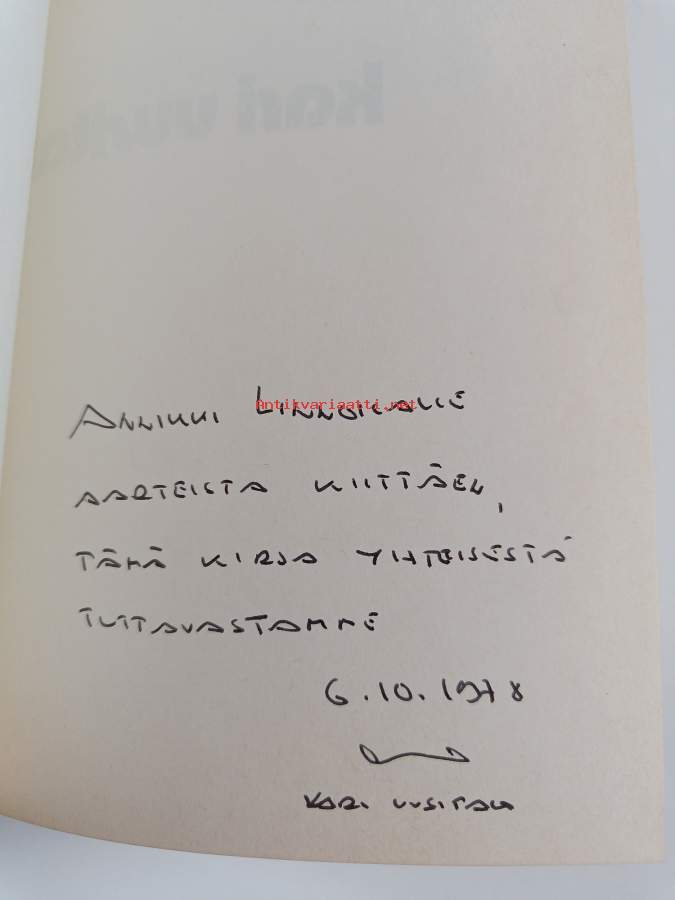 kari uusita
ANNIKKI LINNOILALLE
Antikvariaatti.net
AARTEISTA KIITTÄEN,
TÄMÄ KIRJA YHTEISESTÄ
TUTTAVASTAMME
6.10.1978
KARI UUSITALO